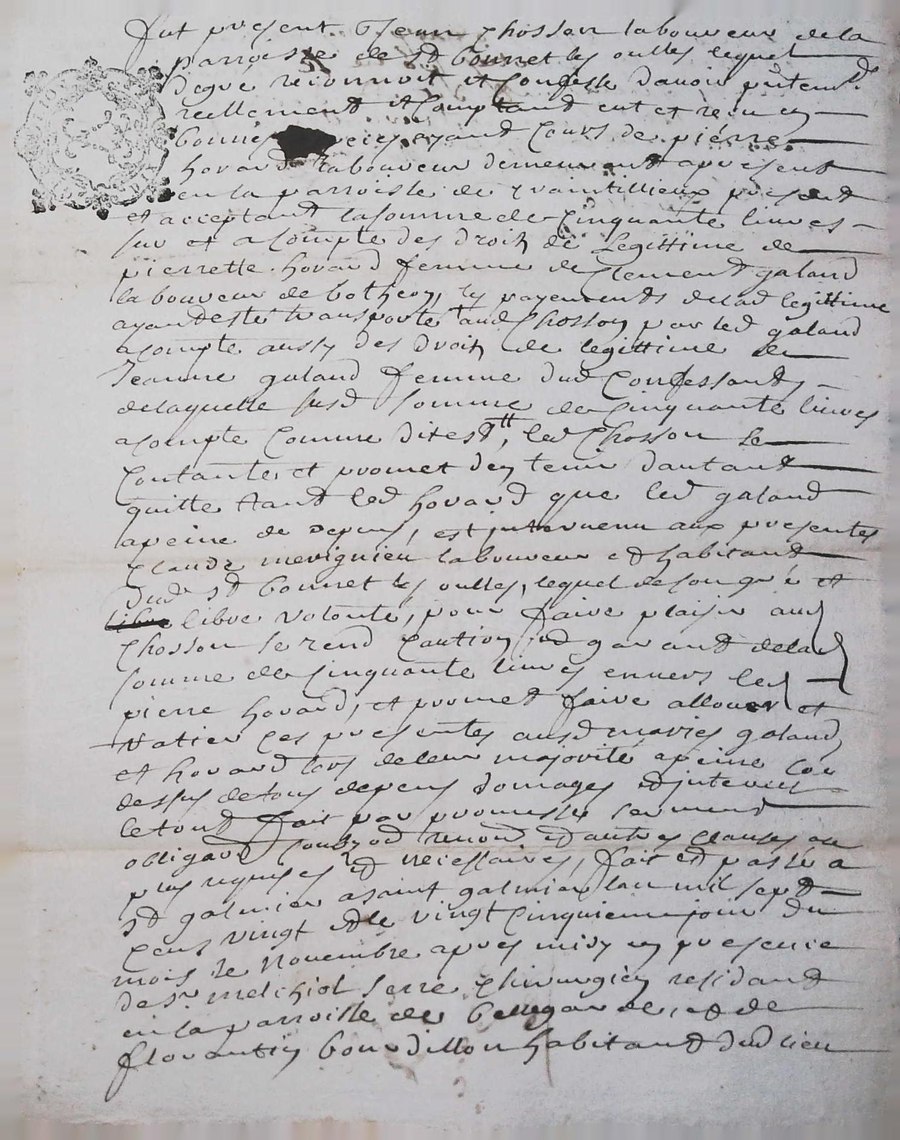 fut present Jean Chosson laboureur de la
parroisse de St bonnet les oulles lequel
degré reconnoit et confesse davoir presentemt
reellement et comptand eut et receu en
bonnes especes ayand cours de pierre
hovard laboureur demeurant apresent
en la parroisse de craintillieux present
et acceptant la somme de Cinquante livres
sur et acompte des droits de Legittime de
pierrette hovard femme de Clement galand
laboureur de botheon, les payements de lad legittime
ayand esté transporté aud Chosson par led galand
acompte aussy des droits de legittime de
Jeanne galand femme dud Confessant
delaquelle susd somme de Cinquante livres
acompte comme dit est, led Chosson se
Contante et promet den tenir dautant
quitte tant led hovard que led galand
apeine de depens, est intervenu aux presentes
Claude merignieu laboureur et habitand
dud St bonnet les oulles, lequel de son gré et
libre libre volonté, pour faire plaisir aud
Chosson se rend Caution et garand delad
somme de Cinquante livres envers led
pierre hovard, et promet faire allouer et
ratier ces presentes ausd mariés galand
et hovard lors de leur majorité apeine
dessus de tous depens domages et interests
le tout fait par promesse serment
obligaon soubzon renond et autres clauses au
plus requises et necessaires, fait et passé a
St galmier asaint galmier lan mil sept
cens vingt et le vingt cinquieme jour du
mois de Novembre apres midy en presence
de sr melchiol serre chirurgien residant
en la parroisse de bellegarde, et de
florantin bourdillon habitant dud lieu